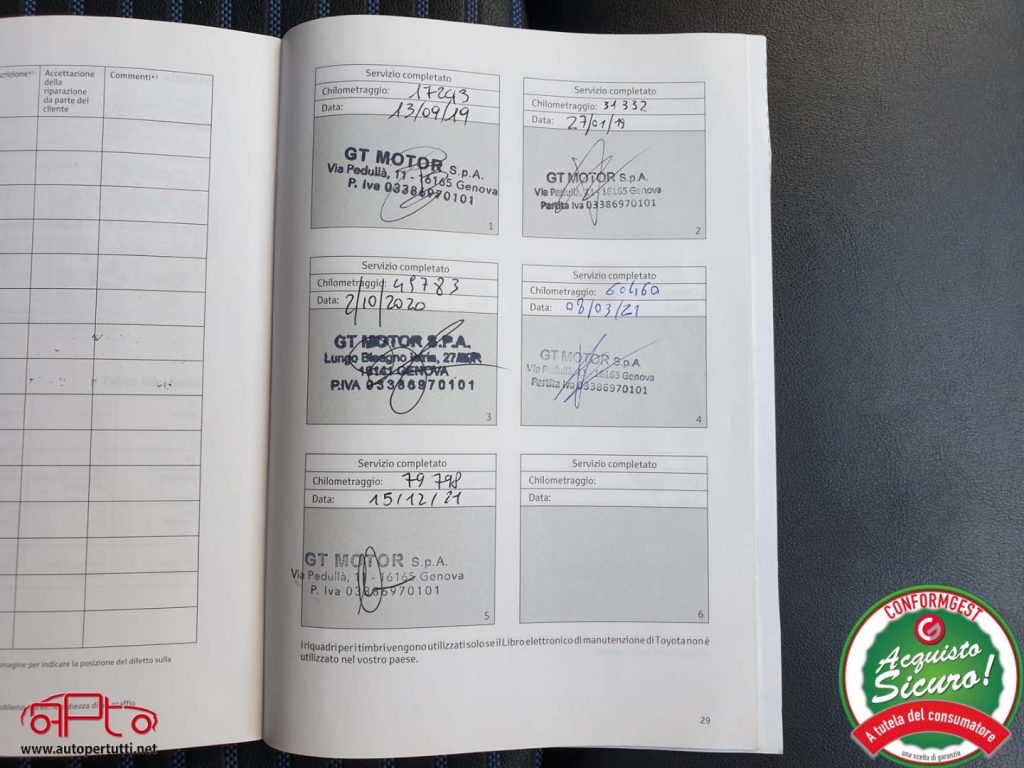 crizione*²
Accettazione
della
riparazione
da parte del
cliente
Commenti*³
mmagine per indicare la posizione del difetto sulla
Servizio completato
Chilometraggio: 17243
Data: 13/09/19
GT MOTOR S.p.A.
Via Pedullà, 11 - 16165 Genova
P. Iva 03386970101
1
Servizio completato
Chilometraggio: 31332
Data: 27/01/19
GT MOTOR S.p.A.
Via Pedullà, 11 - 16165 Genova
Partita Iva 03386970101
2
Servizio completato
Chilometraggio: 49783
Data: 2/10/2020
GT MOTOR S.P.A.
Lungo Bisagno Istria, 27
16141 GENOVA
P.IVA 03386970101
3
Servizio completato
Chilometraggio: 60460
Data: 08/03/21
GT MOTOR S.p.A.
Via Pedullà, 11 - 16165 Genova
Partita Iva 03386970101
4
Servizio completato
Chilometraggio: 79798
Data: 15/12/21
GT MOTOR S.p.A.
Via Pedullà, 11 - 16165 Genova
P. Iva 03386970101
5
Servizio completato
Chilometraggio:
Data:
6
I riquadri per i timbri vengono utilizzati solo se il Libro elettronico di manutenzione di Toyota non è
utilizzato nel vostro paese.
29
aPto
www.autopertutti.net
CONFORMGEST
Acquisto
Sicuro!
A tutela del consumatore
una scelta di garanzia